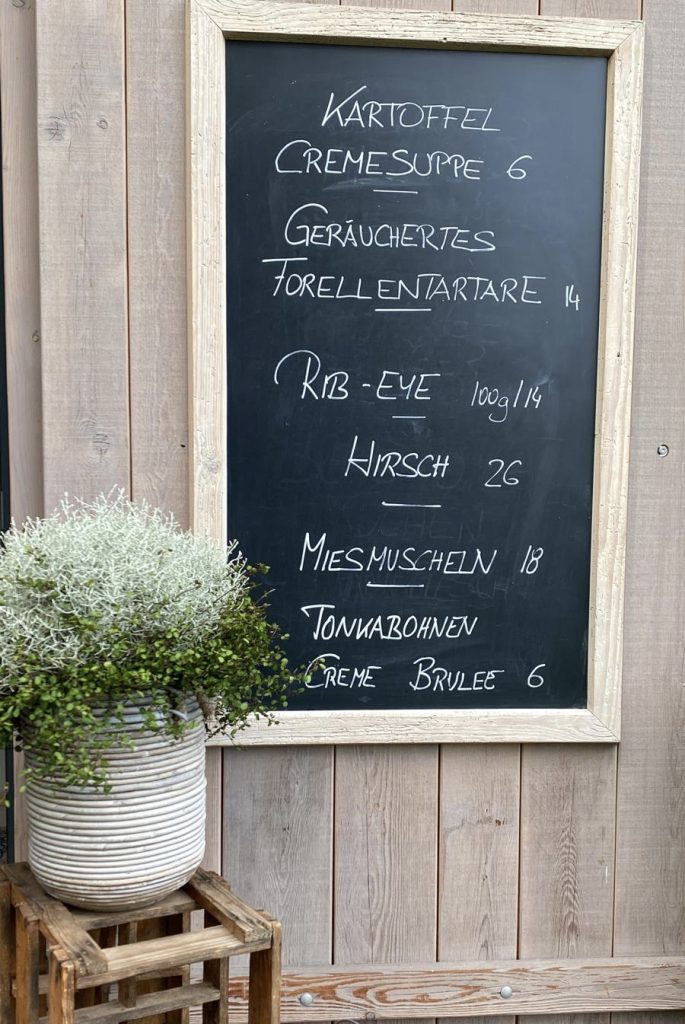 KARTOFFEL
CREMESUPPE 6
GERÄUCHERTES
FORELLENTARTARE 14
RIB-EYE 100g/14
HIRSCH 26
MIESMUSCHELN 18
TONKABOHNEN
CREME BRULEE 6